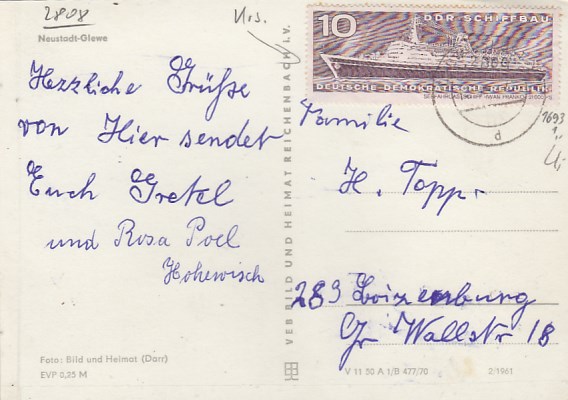 2808
Urs.
Neustadt-Glewe
Herzliche Grüße
von Hier sendet
Euch Gretel
und Rosa Poel
Hohewisch
Foto: Bild und Heimat (Darr)
EVP 0,25 M
VEB BILD UND HEIMAT REICHENBACH I.V.
10 DDR SCHIFFBAU
DEUTSCHE DEMOKRATISCHE REPUBLIK
d
1693
Familie
H. Topp.
283 Boizenburg
Gr Wallstr 18
V 11 50 A 1/B 477/70
2/1961